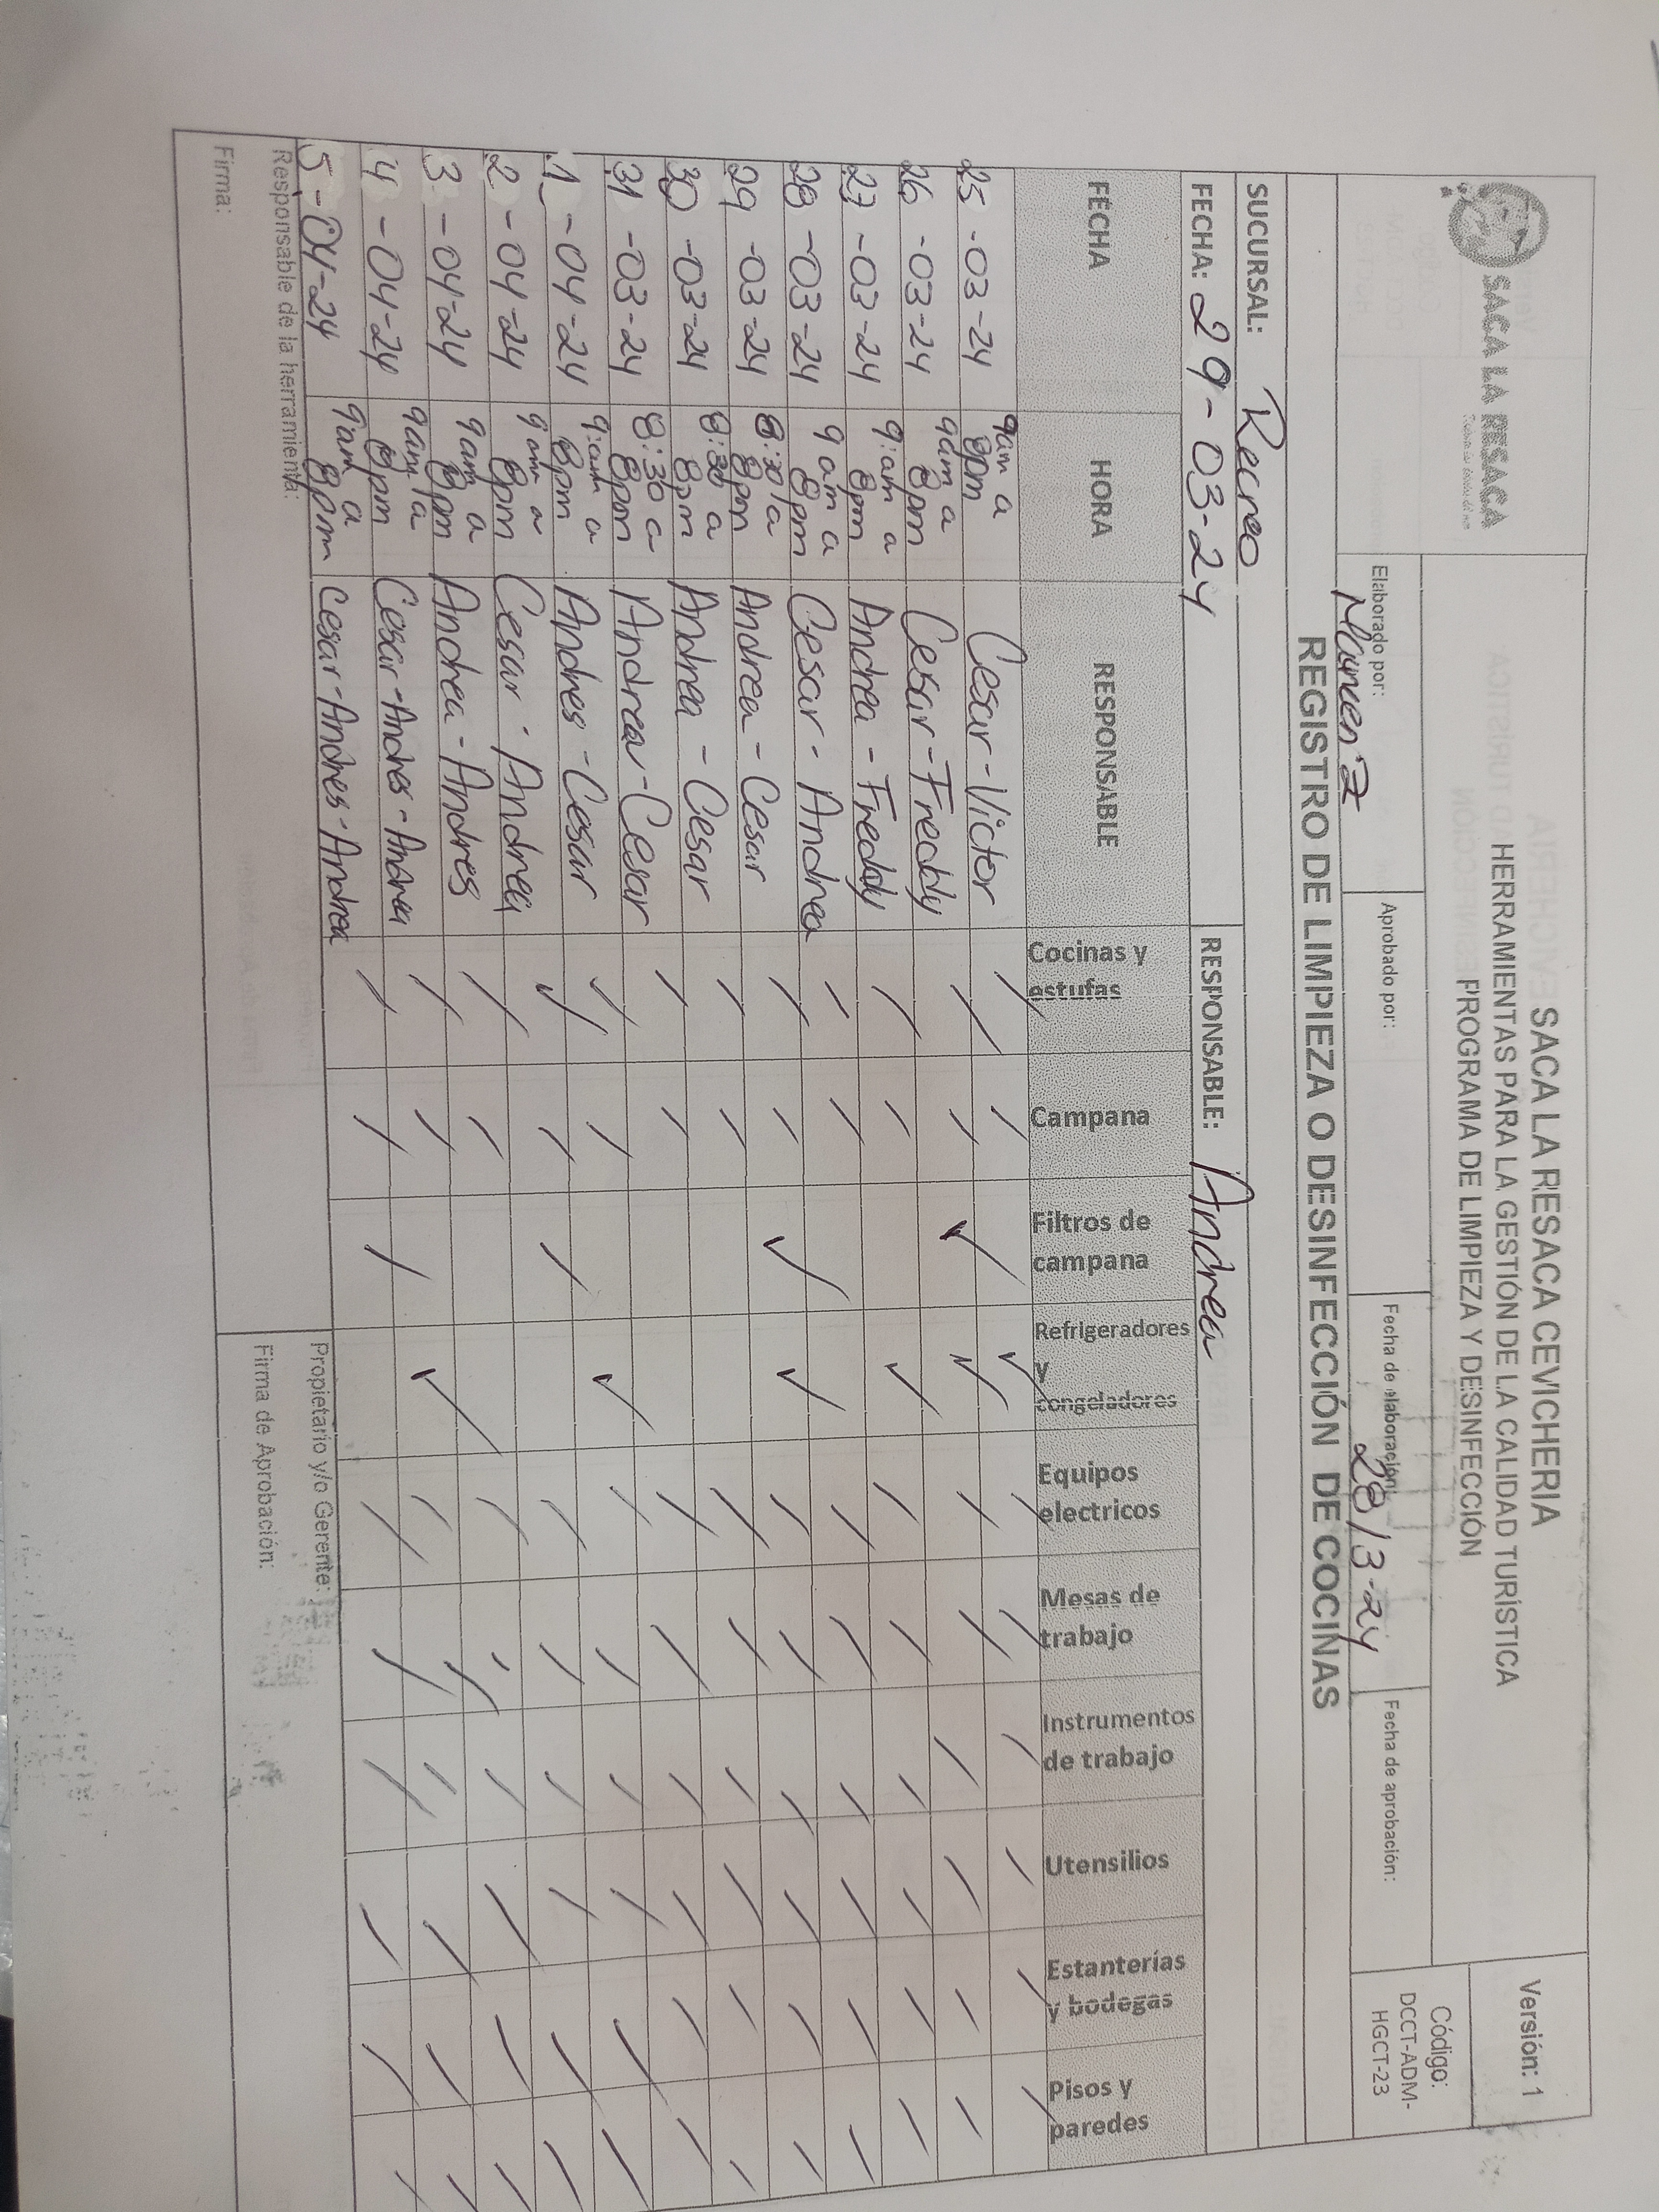 SACA LA RESACA
SACA LA RESACA CEVICHERIA
HERRAMIENTAS PARA LA GESTIÓN DE LA CALIDAD TURÍSTICA
PROGRAMA DE LIMPIEZA Y DESINFECCIÓN
Versión: 1
Código:
DCCT-ADM-
HGCT-23
Elaborado por:
Aprobado por:
Fecha de elaboración: 28/3-24
Fecha de aprobación:
REGISTRO DE LIMPIEZA O DESINFECCIÓN DE COCINAS
SUCURSAL: Recreo
FECHA: 29-03-24 RESPONSABLE: Andrea
FECHA HORA RESPONSABLE Cocinas y estufas Campana Filtros de campana Refrigeradores y congeladores Equipos electricos Mesas de trabajo Instrumentos de trabajo Utensilios Estanterías y bodegas Pisos y paredes
25-03-24 9am a 8pm Cesar-Victor
26-03-24 9am a 8pm Cesar-Freddy
27-03-24 9:am a 8pm Andrea-Freddy
28-03-24 9am a 8pm Cesar-Andrea
29-03-24 8:30 a 8pm Andrea-Cesar
30-03-24 8:30 a 8pm Andrea-Cesar
31-03-24 8:30 a 8pm Andrea-Cesar
1-04-24 9:am a 8pm Andres-Cesar
2-04-24 9am a 8pm Cesar-Andrea
3-04-24 9am a 8pm Andrea-Andres
4-04-24 9am a 8pm Cesar-Andres-Andrea
5-04-24 9am a 8pm Cesar-Andres-Andrea
Responsable de la herramienta:
Propietario y/o Gerente:
Firma:
Firma de Aprobación: